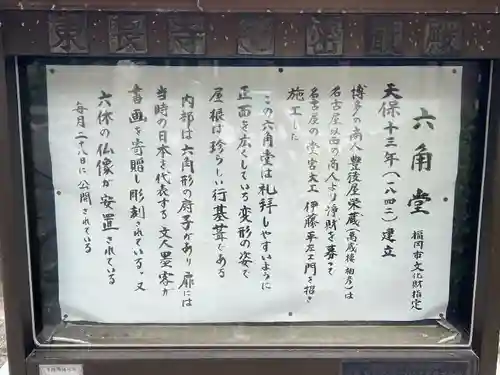 東長寺
六角堂
福岡市文化財指定
天保十三年（一八四二）建立
博多の商人豊後屋栄蔵（高後
名古屋以西の商人より浄財を募って
名古屋の堂宮大工 伊藤平左エ門を招き
施工した
この六角堂は礼拝しやすいように
正面を広くしている変形の姿で
屋根は珍らしい行基葺である
内部は六角形の厨子があり扉には
当時の日本を代表する文人墨客が
書画を寄贈し彫刻されている。又
六体の仏像が安置されている
毎月二十八日に公開されている